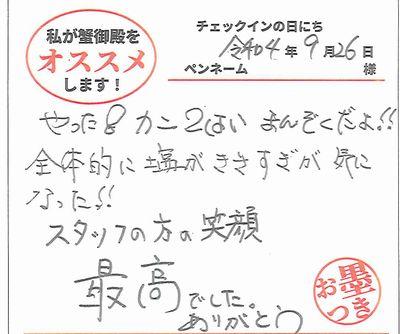 私が蟹御殿を
オススメ
します！
チェックインの日にち
令和4年9月26日
ペンネーム 様
やった8カニ2はい まんぞくだよ!!
全体的に塩がききすぎが気に
なった!!
スタッフの方の笑顔
最高でした。
ありがとう
お墨つき